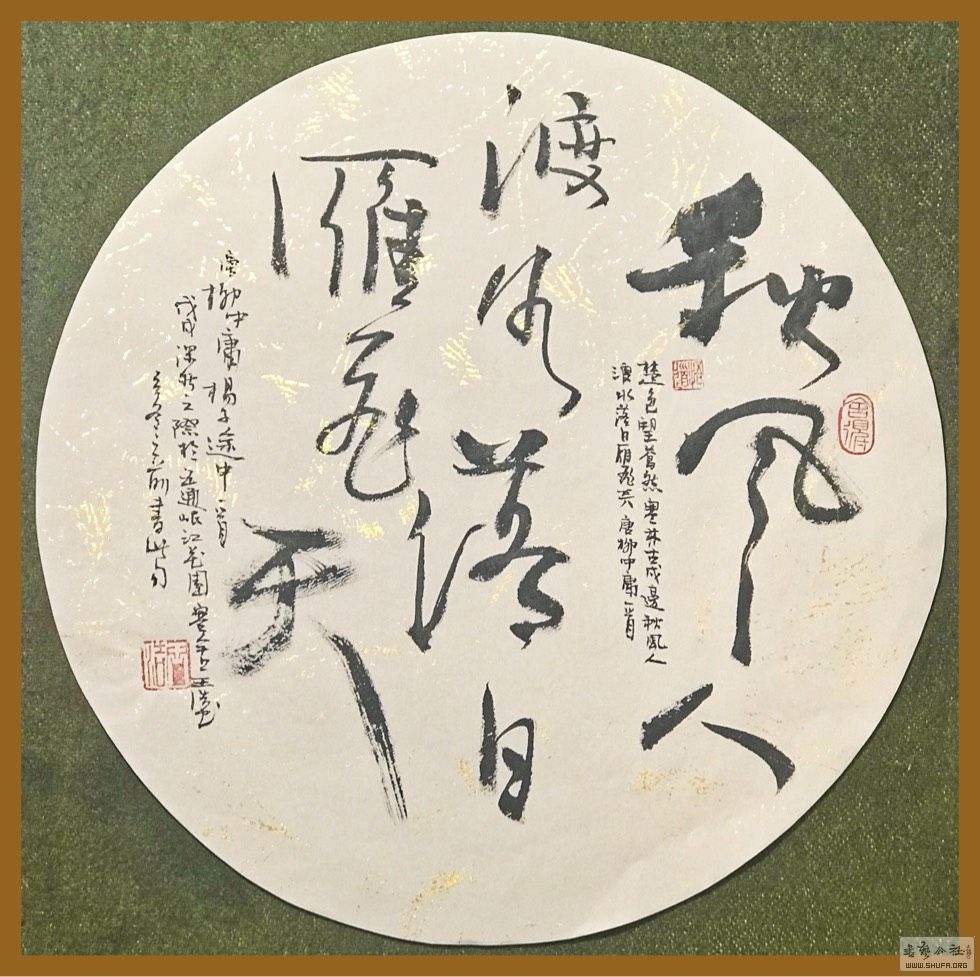 秋风人
渡水落日
雁飛天
楚色望蒼然寒林古戍邊秋風人
渡水落日雁飛天 唐柳中庸一首
唐柳中庸 揚子途中一首
戊戌深秋之際於五通岷江花園
書此句
書藝公社
WWW.SHUFA.ORG